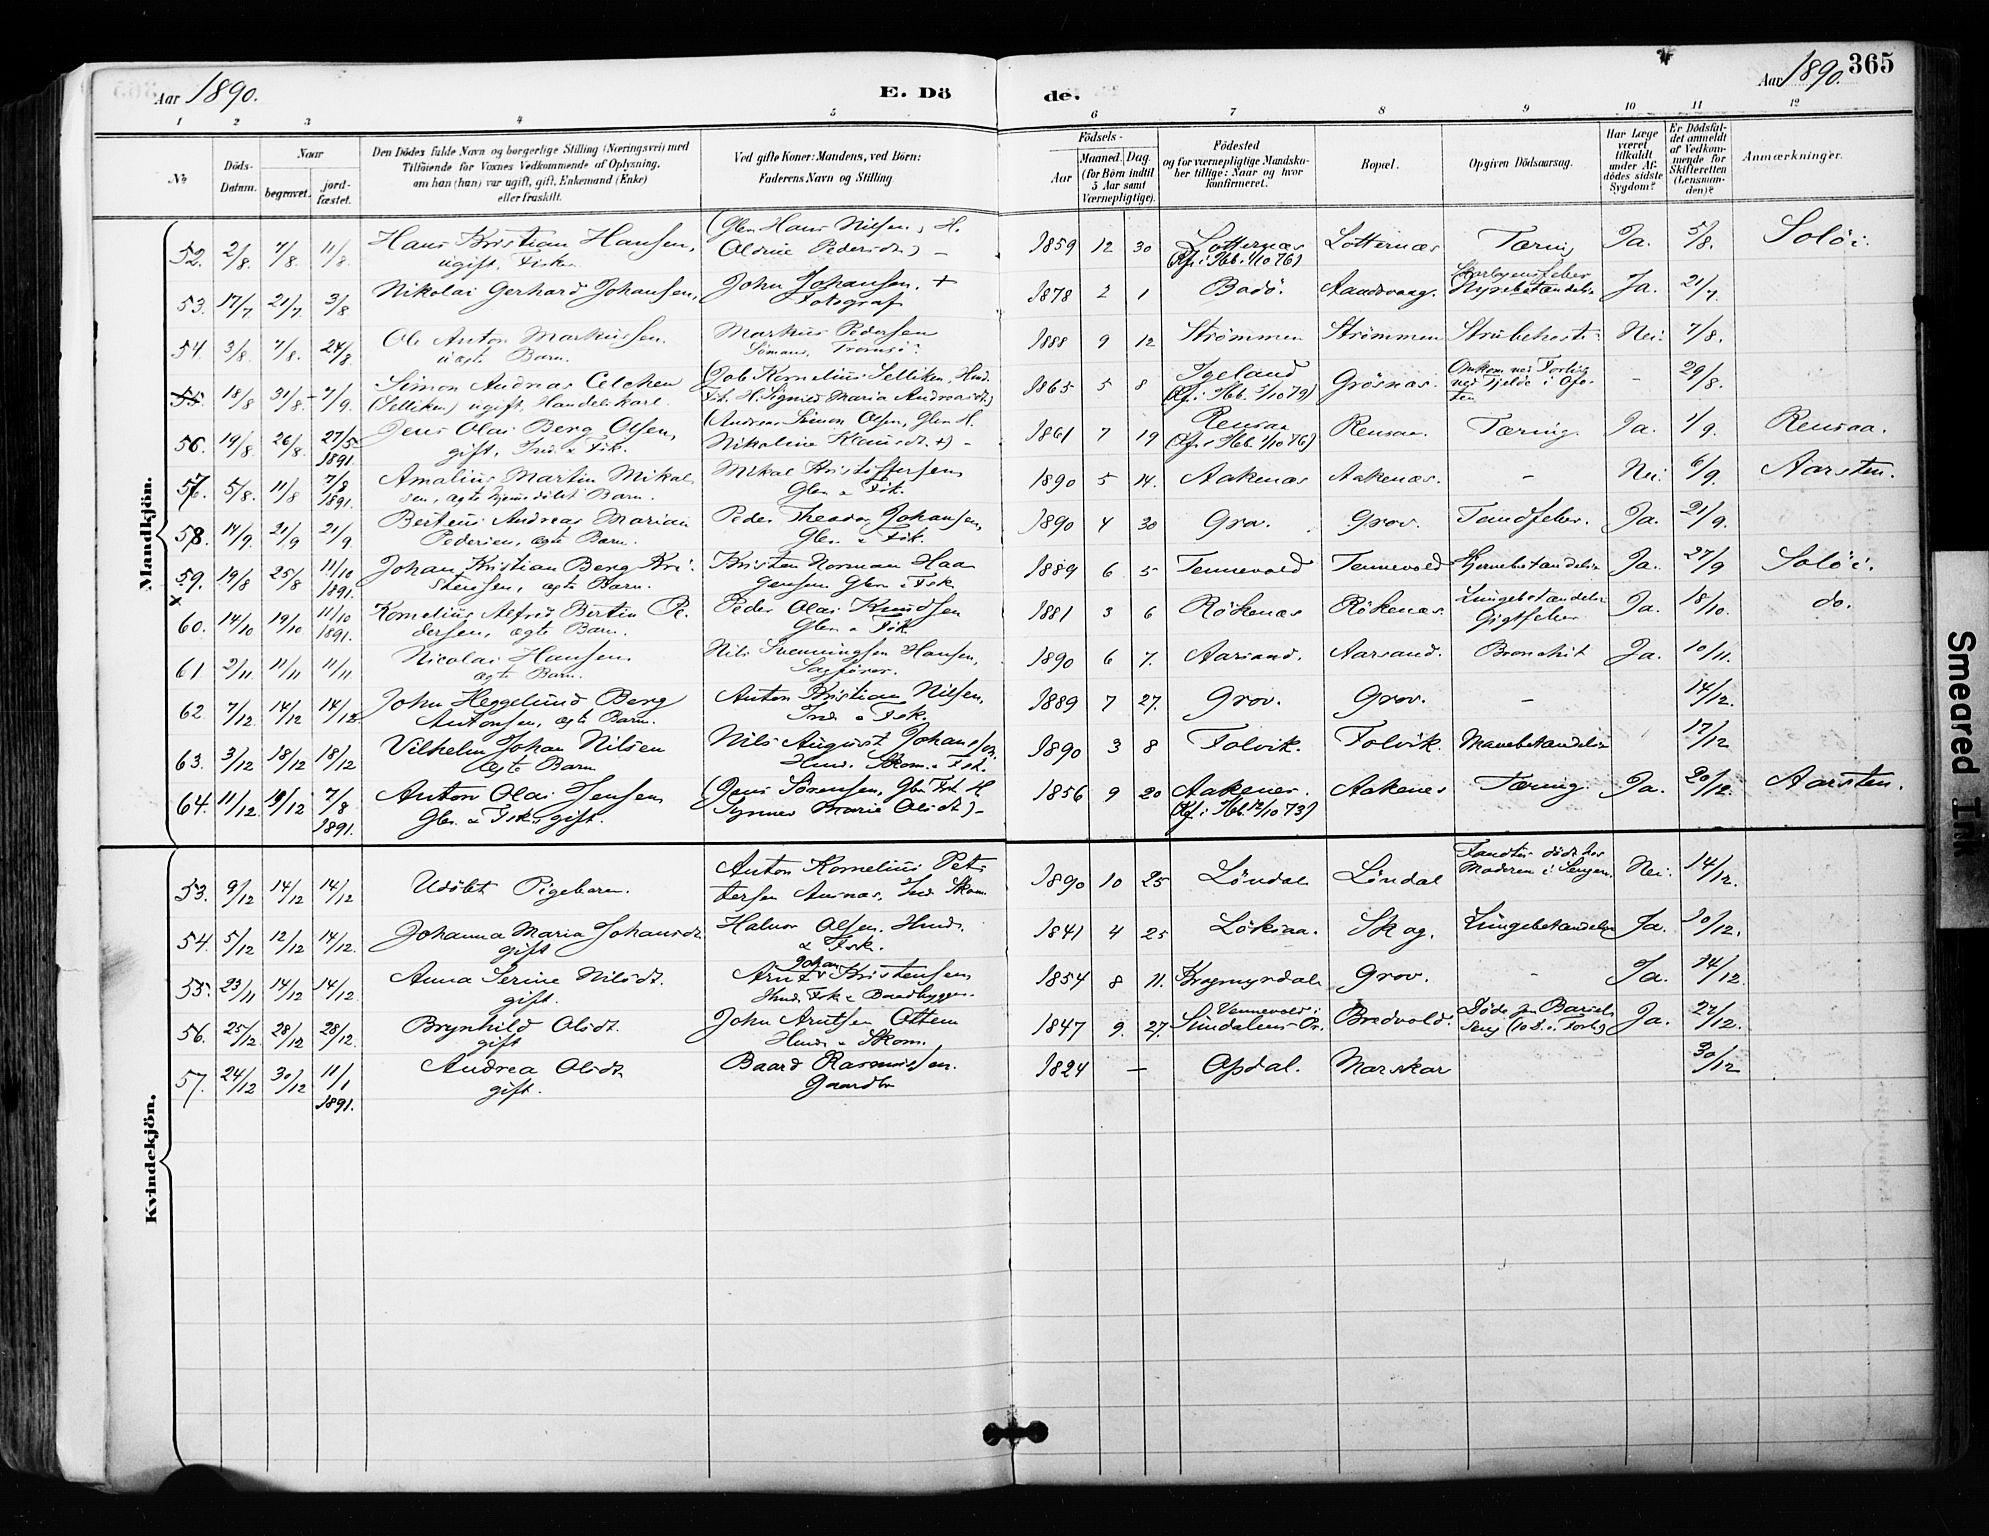 Aar 1890. E. Dö de. Aar 1890. 365
1 2 3 4 5 6 7 8 9 10 11 12
No Döds-Datum. Naar begravet. jordfæstet. Den Dödes fulde Navn og borgerlige Stilling (Næringsvei) med Tilföiende for Voxnes Vedkommende af Oplysning, om han (hun) var ugift, gift, Enkemand (Enke) eller fraskilt. Ved gifte Koner: Mandens, ved Börn: Faderens Navn og Stilling. Födsels- Aar Maaned. Dag. (for Börn indtil 5 Aar samt Værnepligtige). Födested og for værnepligtige Mandskaber tillige: Naar og hvor konfirmeret. Bopæl. Opgiven Dödsaarsag. Har Læge været tilkaldt under Afdödes sidste Sygdom? Er Dödsfaldet anmeldt af Vedkommende for Skifteretten (Lensmanden)? Anmærkninger.
Mandkjön.
52. 2/8 7/8 11/8 Hans Kristian Hansen, ugift, Fisker (Glm Hans Nilsen, H. Aldine Pedersdt.) 1859 12 30 Lotternæs (Kf. i Hb. 1/10 76) Lotternæs Tæring Ja. 5/8. Solöi.
53. 17/7 21/7 3/8 Nikolai Gerhard Johansen, John Johansen. + Fotograf 1878 2 1 Bodö. Aandsvaag. Nyrebetændelse Ja. 21/7
54. 3/8 7/8. 24/8 Ole Anton Markussen. uægte Barn. Markus Pedersen Sömand, Tromsö. 1888 9 12 Strömmen Strömmen Strubehoste Nei. 7/8.
55. 18/8 31/8 7/9. Simon Andreas Celchen (Selliken) ugift, Handelskarl. (Job Kornelius Selliken, Hmd. Fisk. H. Signild Maria Andreasdt.) 1865 5 8 Igeland (Kf. i Hb. 5/10 79) Grösnæs. Omkom ved Forlis ved Fjelde i Ofoten - 29/8.
56. 19/8 26/8 27/5 1891. Jens Olai Berg Olsen, gift, Ind. & Fisk. (Andreas Simon Olsen, Glm H. Nikoline Klausdt. +) - 1861 7 19 Rensaa (Kf. i Hb. 1/10 76) Rensaa. Tæring. Ja. 1/9. Rensaa.
57. 5/8. 11/8 7/8 1891. Amalius Martin Mikalsen, ægte hjemdöbt Barn. Mikal Kristoffersen, Glm & Fisk. 1890 5 14. Aakenæs Aakenæs. - Nei. 6/9 Aarsten.
58. 14/9. 21/9 21/9 Berteus Andreas Marian Pedersen, ægte Barn. Peder Theodor Johansen, Glm & Fisk. 1890 4 30 Grov. Grov. Tandfeber. Ja. 21/9.
59. 19/8 25/8 11/10 1891. Johan Kristian Berg Kristensen, ægte Barn. Kristen Norman Haagensen Glm & Fisk 1889 6 5 Tennevold Tennevold Hjernebetændelse Ja. 27/9 Solöi.
× 60. 14/10 19/10 11/10 1891. Kornelius Alfred Bertin Pedersen, ægte Barn. Peder Olai Knudsen Glm & Fisk 1881 3 6 Rökenæs Rökenæs. Lungebetændelse Gigtfeber Ja. 18/10. do.
61 2/11. 11/11 11/11 Nicolai Hansen. ægte Barn. Nils Svenningsen Hansen, Sagförer. 1890 6 7. Aarsand. Aarsand. Bronchit Ja. 10/11.
62 7/12 14/12 14/12 John Heggelund Berg Antonsen, ægte Barn. Anton Kristian Nilsen, Ind. & Fisk. 1889 7 27. Grov. Grov. - 14/12.
63. 3/12 18/12 18/12 Vilhelm Johan Nilsen ægte Barn Nils August Johansen, Hmd. Skom. & Fisk. 1890 3 8 Folvik. Folvik. Mavebetændelse 17/12
64. 11/12. 19/12 7/8 1891. Anton Olai Jensen Glm & Fisk. gift. (Jens Sörensen, Glm Fisk H. Synner Marie Olsdt.) - 1856 9 20 Aakenes. (Kf. i Hb. 12/10 73) Aakenes Tæring. Ja. 20/12. Aarsten.
Kvindekjön.
53. 9/12 14/12 14/12 Udöbt Pigebarn. Anton Kornelius Pettersen Aunæs. Ind Skom. 1890 10 25 Löndal Löndal Fandtes död hos Moderen i Sengen. Nei. 14/12.
54. 5/12 12/12 14/12. Johanna Maria Johansdt. gift Halvor Olsen Hmd. & Fisk. 1841 4 25 Löksaa. Skog. Lungebetændelse Ja. 20/12.
55. 23/11 14/12 14/12. Anna Serine Nilsdt. gift. Arnt Johan Kristensen Hmd. Fisk & Baadbygger. 1854 8 11. Krogmyrdal Grov. - Ja. 14/12
56. 25/12. 28/12 28/12. Brynhild Olsdt. gift John Arntsen Ottem Hmd. & Skom. 1847 9. 27. Vennevold i Sundalens Pr. Bredvold. Döde paa Barselseng (10 D. i Forl.) Ja. 27/12.
57. 24/12 30/12 11/1 1891. Andrea Olsdt gift. Baard Rasmussen. Gaardbr 1824 - Opdal. Marskar 30/12
Smeared Ink